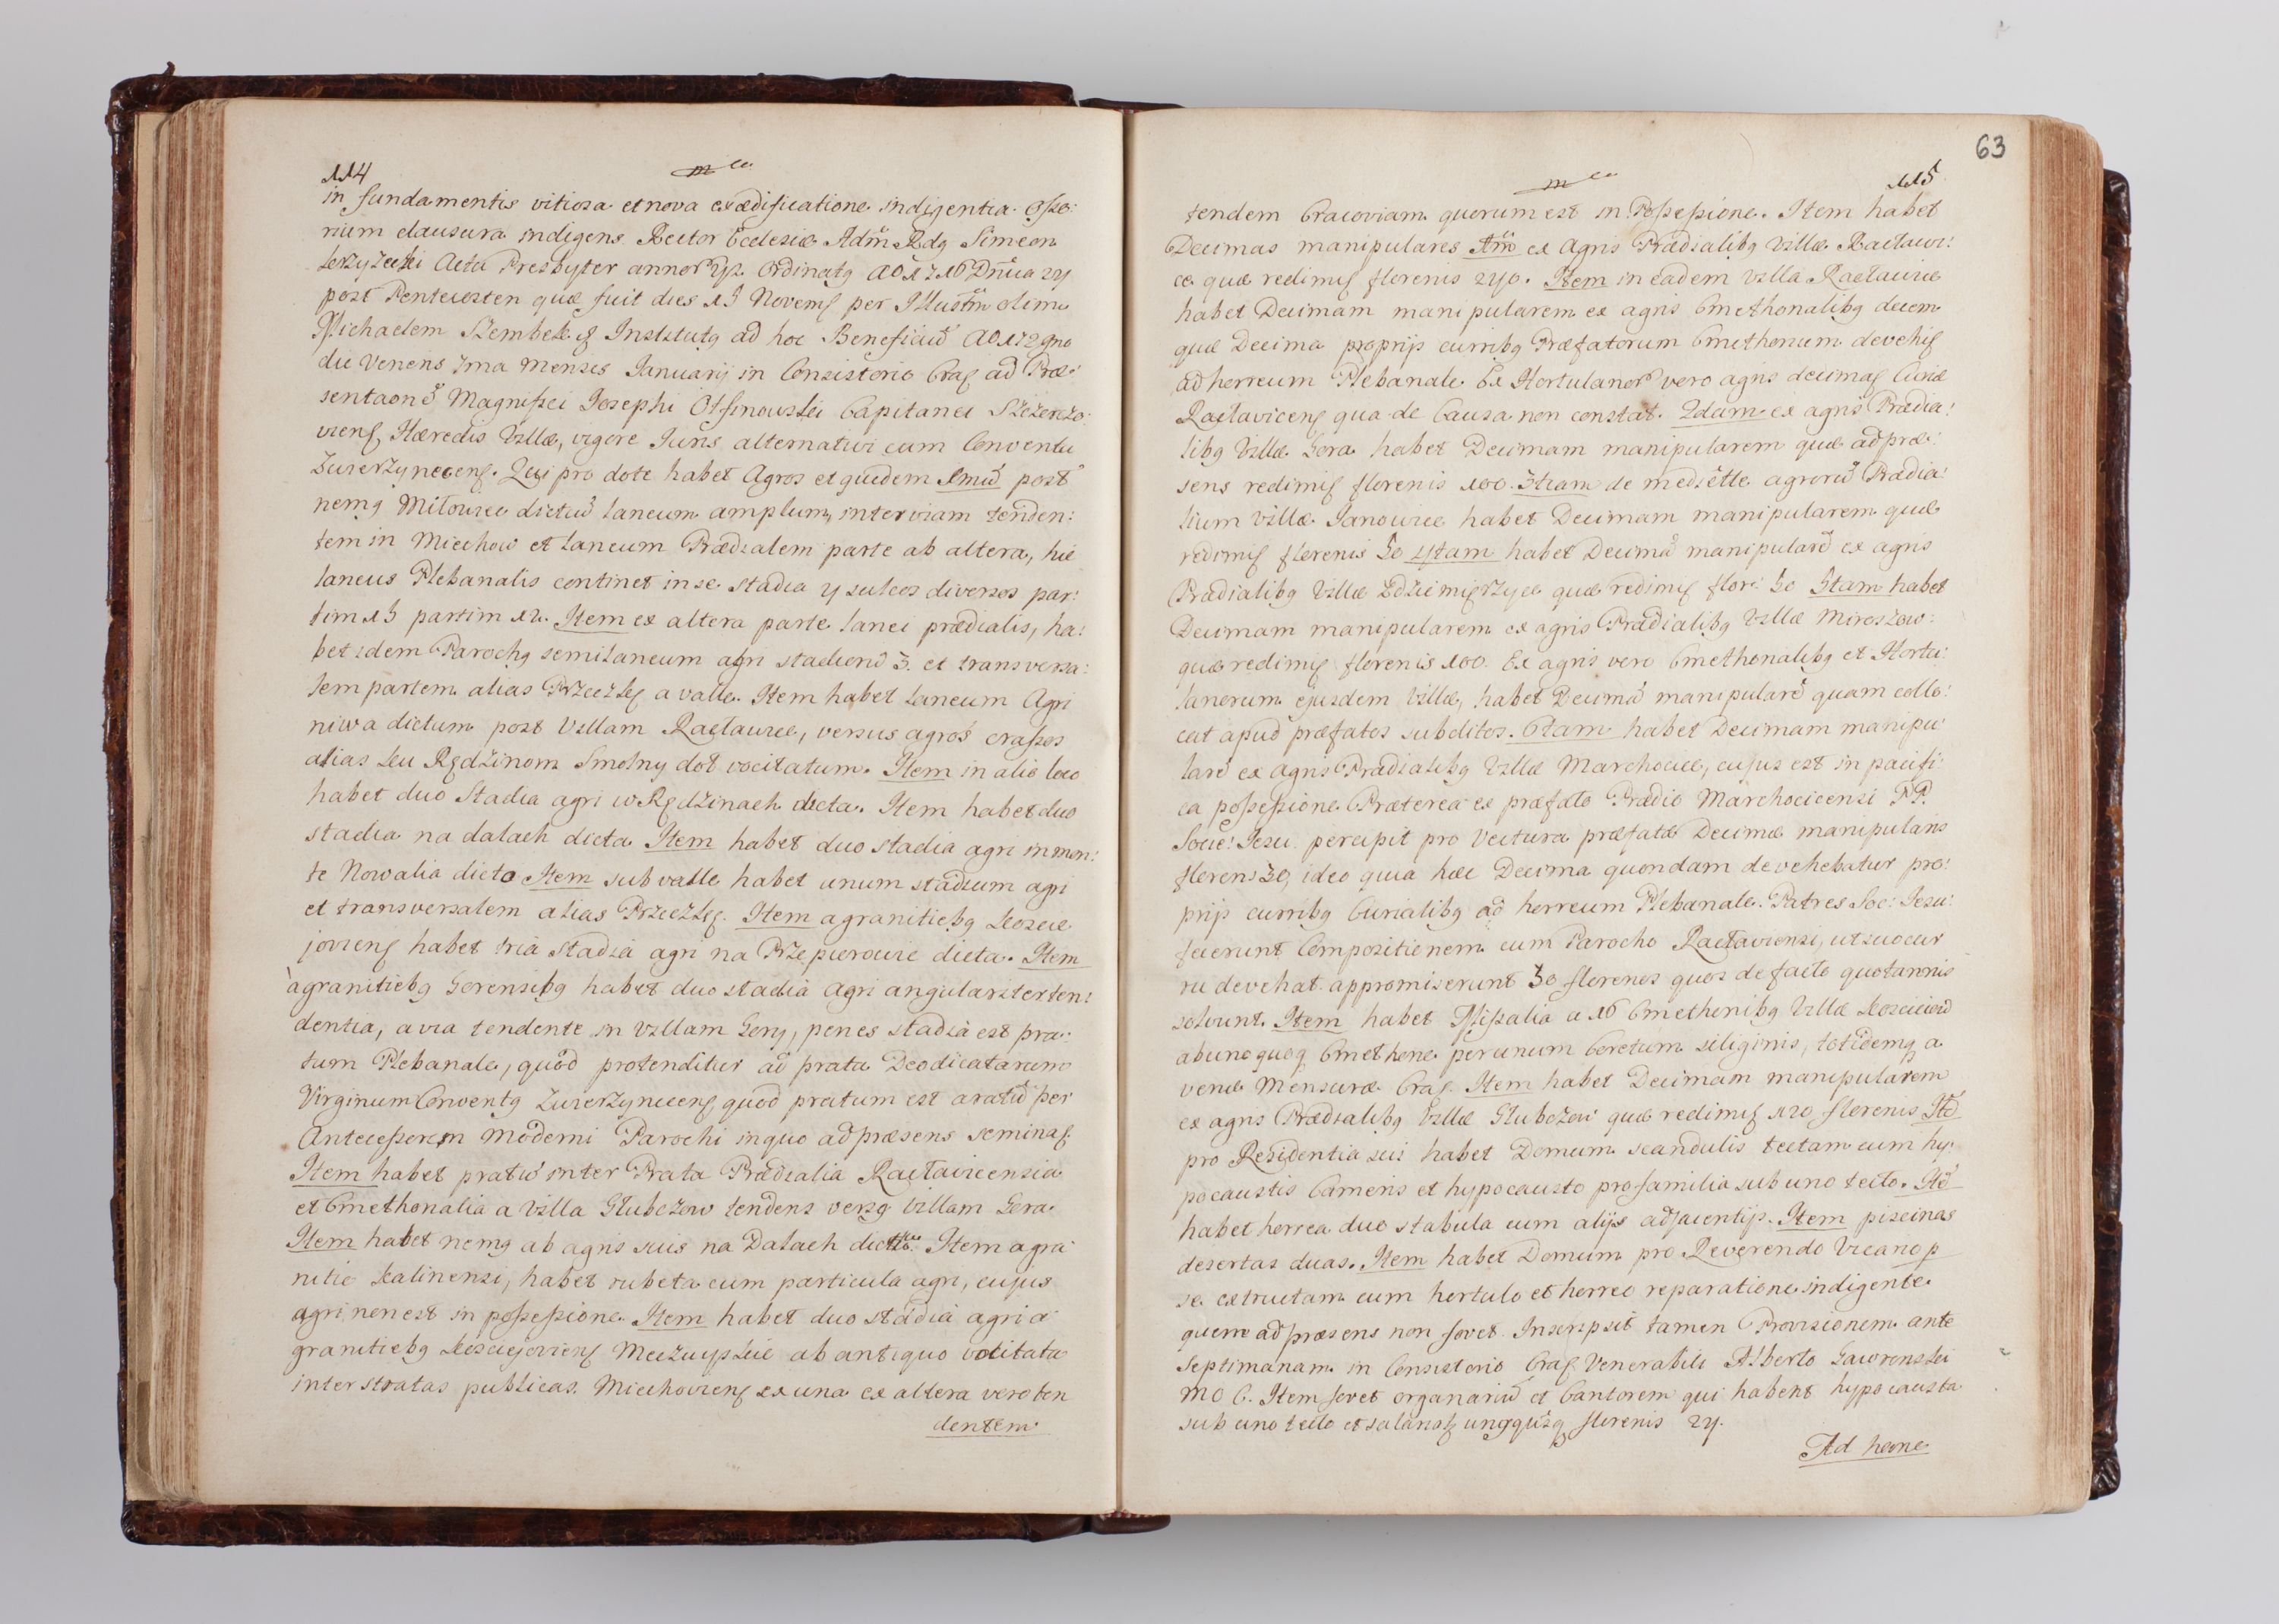 114
in fundamentis vitiosa et nova exædificatione indigentia. Osso:
rium clausura indigens. Rector Ecclesiæ Adm̃ Rdg Simeon
Acta Presbyter annor̃ Ordinatg A0 1716 Dñica 24
post Pentecosten quæ fuit dies 15 Novemɕ per Illustm̃ olim
Michaelem Szembek & Institutg ad hoc Beneficiũ A0 172
die Veneris Ima Mensis Januarij in Consistorio Craɕ ad Præ:
sentaonẽ Magnifici Josephi Otfinowski Capitanei
viensɕ Hæredis Villæ, vigore Juris alternativi cum Conventu
Zwierzynecensɕ. Qui pro dote habet Agros et quidem 1mũ post
nemg Miłowice dictũ laneum amplum, inter viam tenden:
tem in Miechow et Laneum Prædialem parte ab altera, hic
laneus Plebanalis continet in se stadia 4 sulcos diversos par:
tim 15 partim 12. Item ex altera parte lanei prædialis, ha:
bet idem Parochg semilaneum agri stadiorũ 3. et transversa:
lem partem alias a valle. Item habet laneum Agri
niwa dictum post Villam Racławice, versus agros crassos
alias ku Rędzinom Smolny doł vocitatum. Item in alio loco
habet duo Stadia agri w Rędzinach dicta. Item habet duo
stadia na dalach dicta Item habet duo stadia agri in mon:
te Nowalia dicto Item sub valle habet unum stadium agri
et transversalem alias Item a granitiebg Koscie
joviensɕ habet tria stadia agri na Przepierowie dicta. Item
a granitiebg Gorensibg habet duo stadia agri angulariter ten:
dentia, a via tendente in villam Gory, penes stadia est pra:
tum Plebanale, quod protenditur ad prata Deodicatarum
Virginum Conventg Zwierzynecensɕ, quod pratum est aratũ per
Antecessorem moderni Parochi in quo ad præsens seminaɕ.
Item habet pratũ inter Prata Prædialia Racławicensia
et Cmethonalia a villa Głubczow tendens versg villam Gora.
Item habet nemg ab agris suis na Dalach Item a gra
nitie Kalinensi, habet rubeta cum particula agri, cujus
agri non est in possessione. Item habet duo stadia agri a
granitiebg Kosciejoviensɕ ab antiquo vocitata
inter stratas publicas. Miechoviensɕ ex una ex altera vero ten
dentem
63
115
tendem Cracoviam quorum est in Possessione. Item habet
Decimas manipulares 1m̃o ex Agris Prædialibg Villæ Racławi:
ce quæ redimiɕ florenis 240. Item in eadem villa Racławice
habet Decimam manipularem ex agris Cmethonalibg decem
quæ Decima proprijs curribg Præfatorum Cmethonum devehiɕ
ad horreum Plebanale. Ex Hortulanor̃ vero agris decimaɕ Curiæ
Racłavicensɕ qua de Causa non constat. 2dam ex agris Prædia:
libg Villæ Gora habet Decimam manipularem quæ ad præ:
sens redimiɕ florenis 100. 3tiam de medi&#x65;tte agrorũ Prædia:
lium villæ Janowice habet Decimam manipularem quæ
redimiɕ florenis 50 4tam habet Decimã manipularẽ ex agris
Prædialibg Villæ quæ redimiɕ flor: 50 5tam habet
Decimam manipularem ex agris Prædialibg Villæ Miroszow:
quæ redimiɕ florenis 100. Ex agris vero Cmethonalibg et Hortu:
lanorum ejusdem Villæ, habet Decimã manipularẽ quam collo:
cat apud præfatos subditos. 6tam habet Decimam manipu
larẽ ex agris Prædialibg Villæ Marchocice, cujus est in pacifi:
ca possessione. Præterea ex præfato Prædio Marchocicensi PP.
Socie: Jesu percipit pro Vectura præfatæ Decimæ manipularis
floren: 30, ideo quia hæc Decima quondam devehebatur pro:
prijs curribg Curialibg ad horreum Plebanale. Patres Soc: Jesu:
fecerunt Compositionem cum Parocho Racłaviensi, ut suo cur
ru devehat. appromiserunt 30 florenos quos de facto quotannis
solvunt. Item habet Missalia a 16 Cmethonibg Villæ
ab uno quoq Cmethone per unum Coretum siliginis, totidemq a
venæ Mensuræ Craɕ. Item habet Decimam manipularem
ex agris Prædialibg Villæ Głubczow quæ redimiɕ 120 florenis Itẽ
pro Residentia sui habet Domum scandulis tectam cum hy:
pocaustis Cameris et hypocausto pro familia sub uno tecto. Itẽ
habet horrea duo stabula cum alijs adjacentijs. Item piscinas
desertas duas. Item habet Domum pro Reverendo Vicario p
se extructam cum hortulo et horreo reparatione indigente
quem ad præsens non fovet. Inscripsit tamen Provisionem ante
Septimanam in Consistorio Craɕ Venerabili Alberto Gaworski
MO C. Item fovet organariũ et Cantorem qui habent hypocausta
sub uno tecto et florenis 24.
Ad hocne